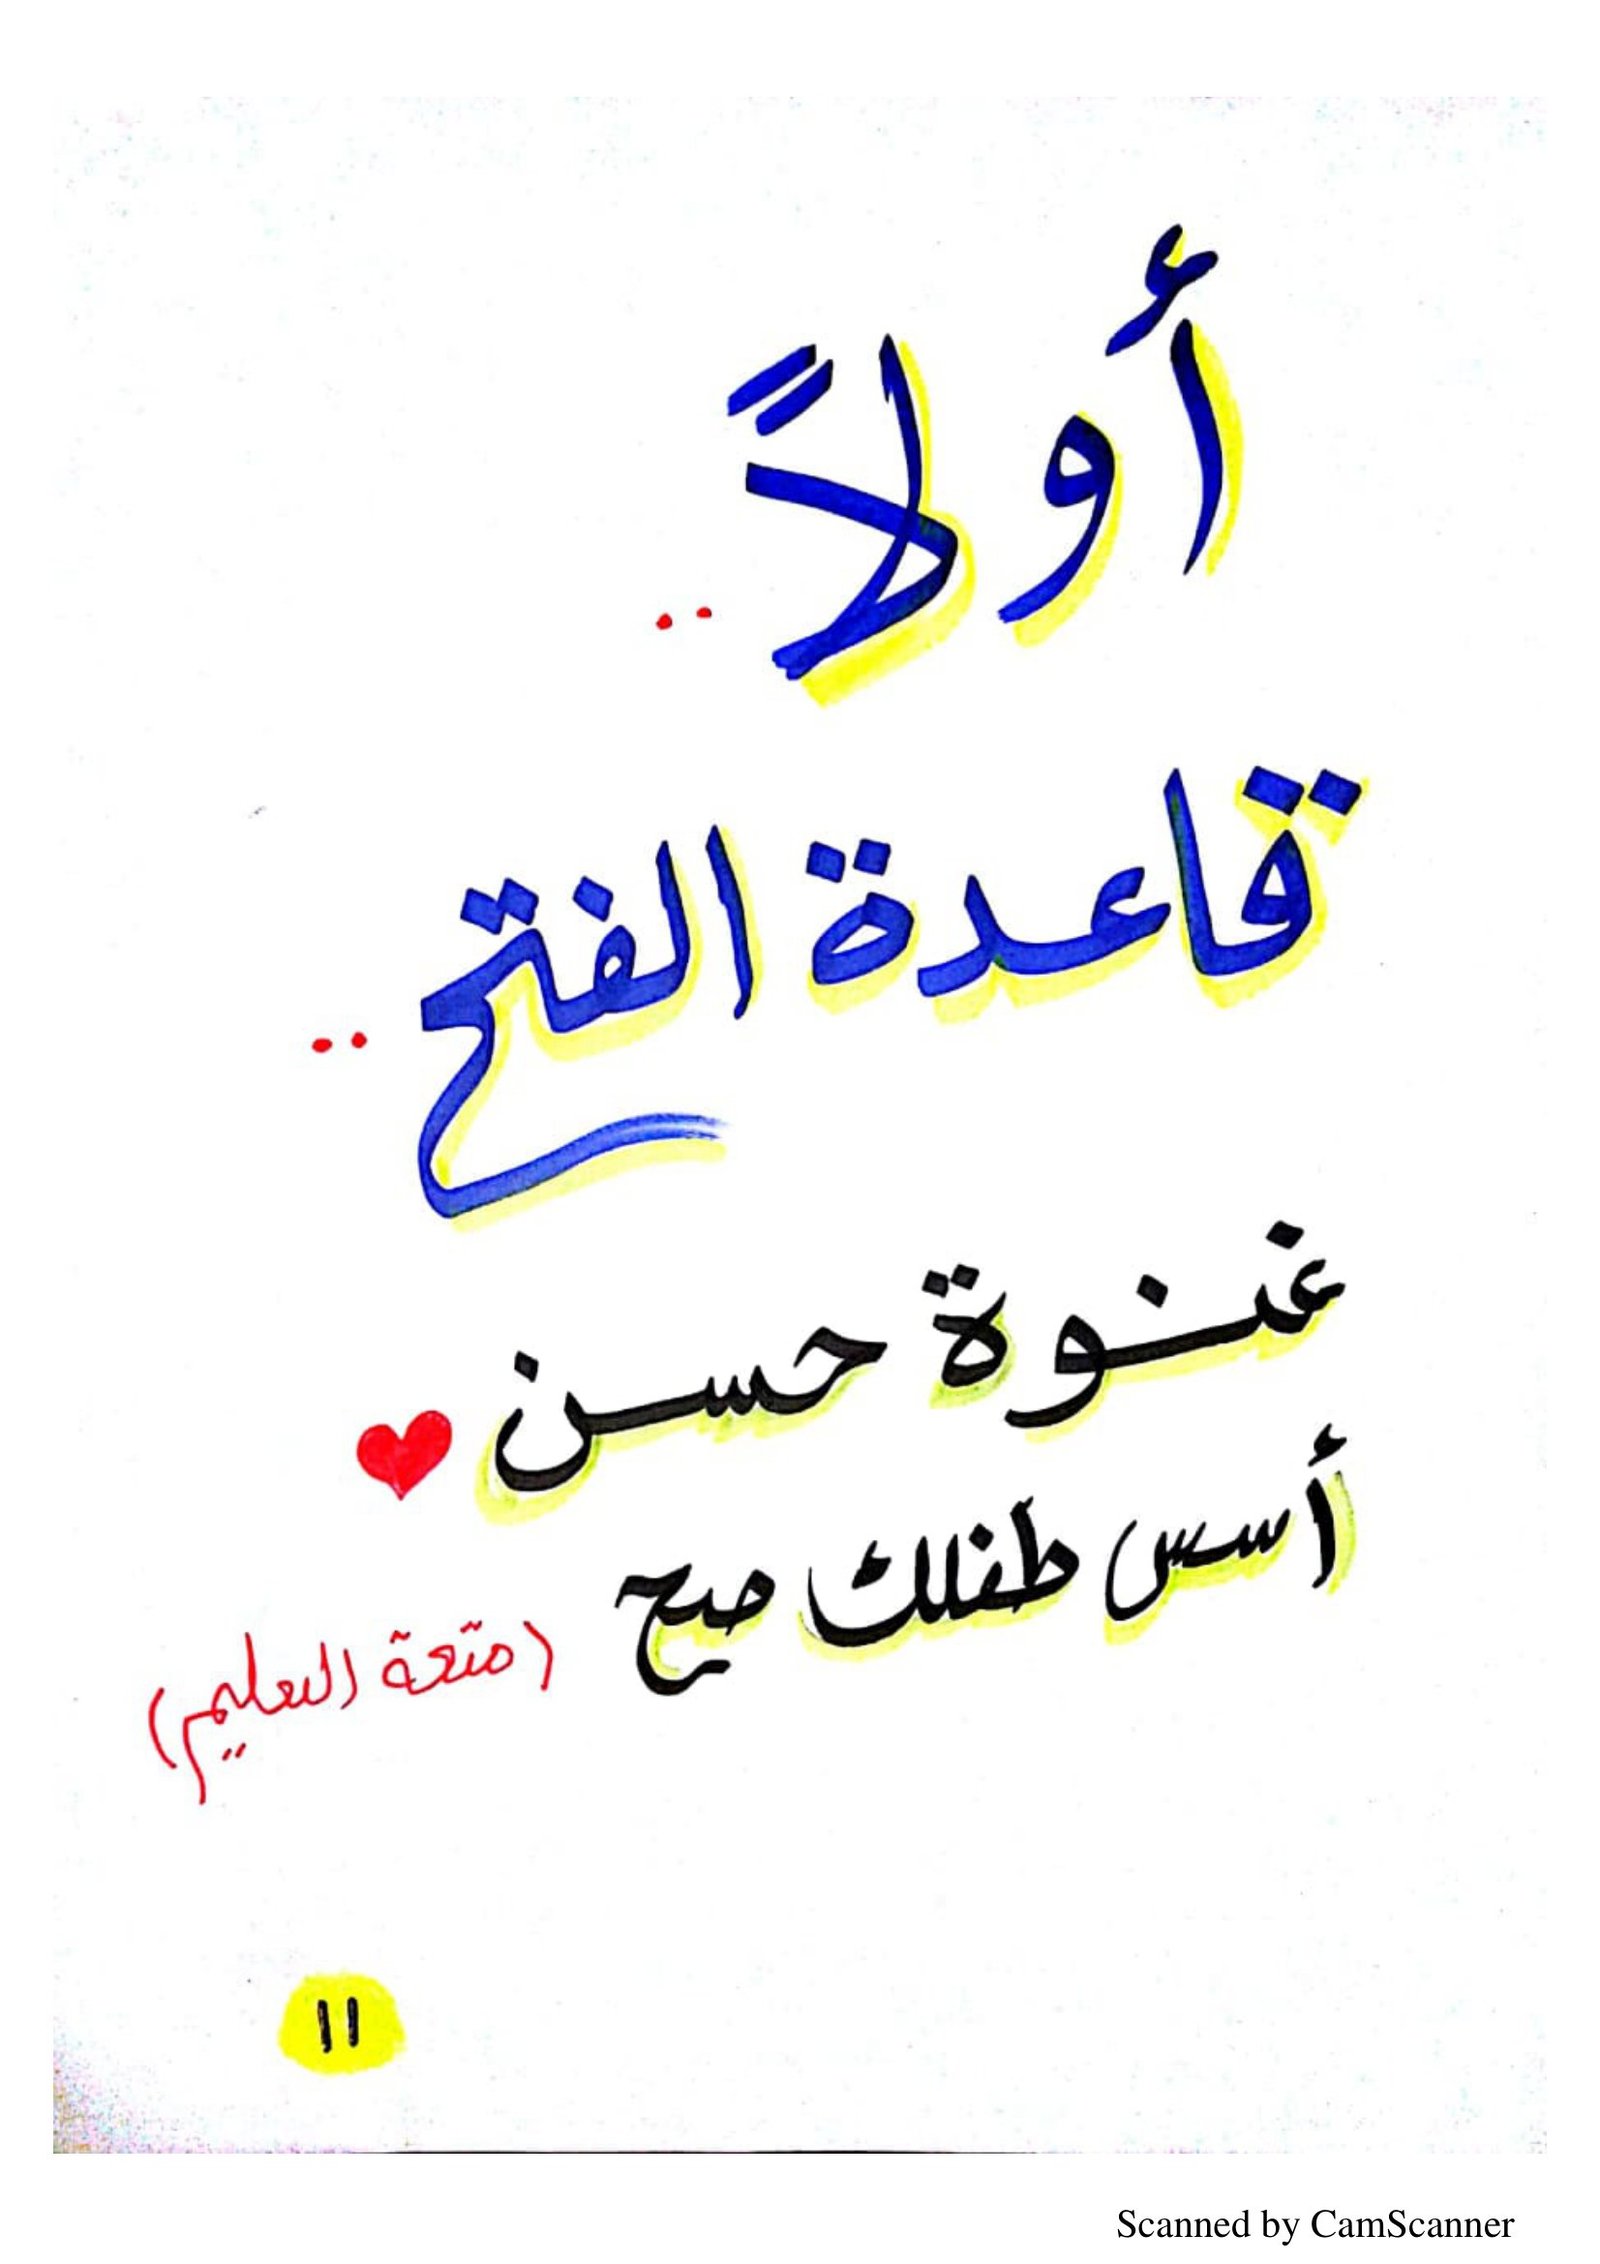 أولاً ..
قاعدة الفتح ..
غنوة حسن
أسس طفلك صح
(متعة التعليم)
١١
Scanned by CamScanner